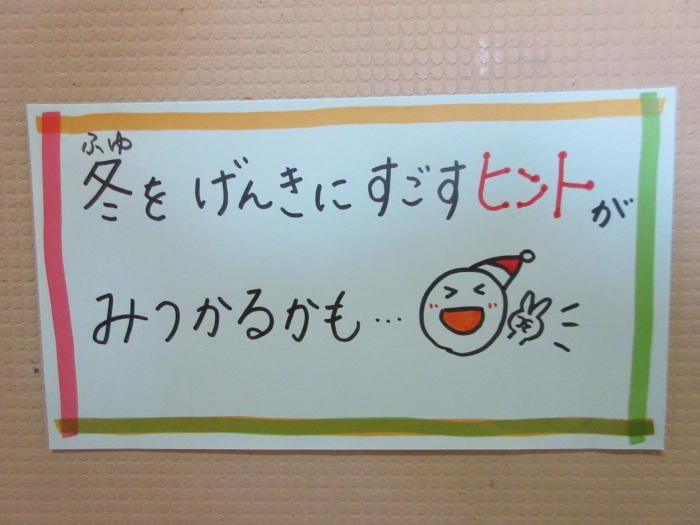 ふゆ
冬をげんきにすごすヒントが
みつかるかも…